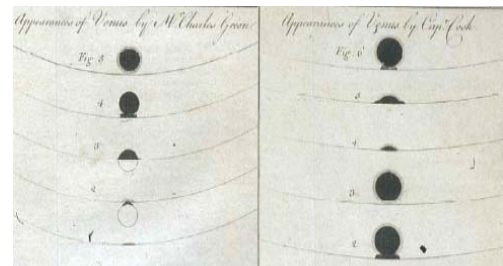 Appearances of Venus by Mr Charles Green.
Fig. 5
4
3
2
1
Appearances of Venus by Capt. Cook.
Fig. 6
5
4
3
2